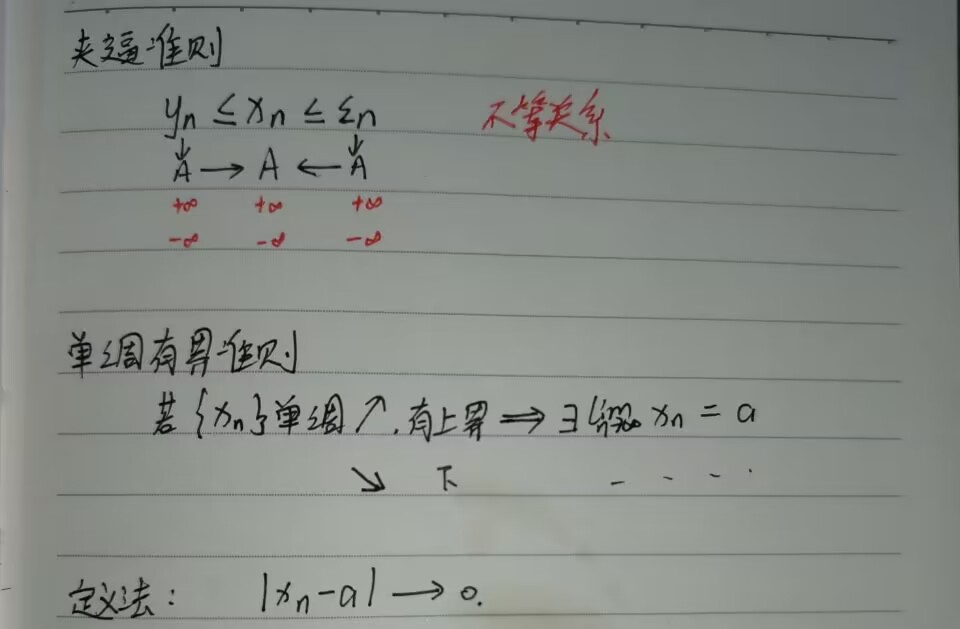 夹逼准则
yn ≤ xn ≤ zn 不等关系
↓ ↓
A → A ← A
+∞ +∞ +∞
-∞ -∞ -∞
单调有界准则
若{xn}单调↗,有上界 ⇒ ∃ lim n→∞ xn = a
↘ 下 - - - ·
定义法: |xn-a| → 0.